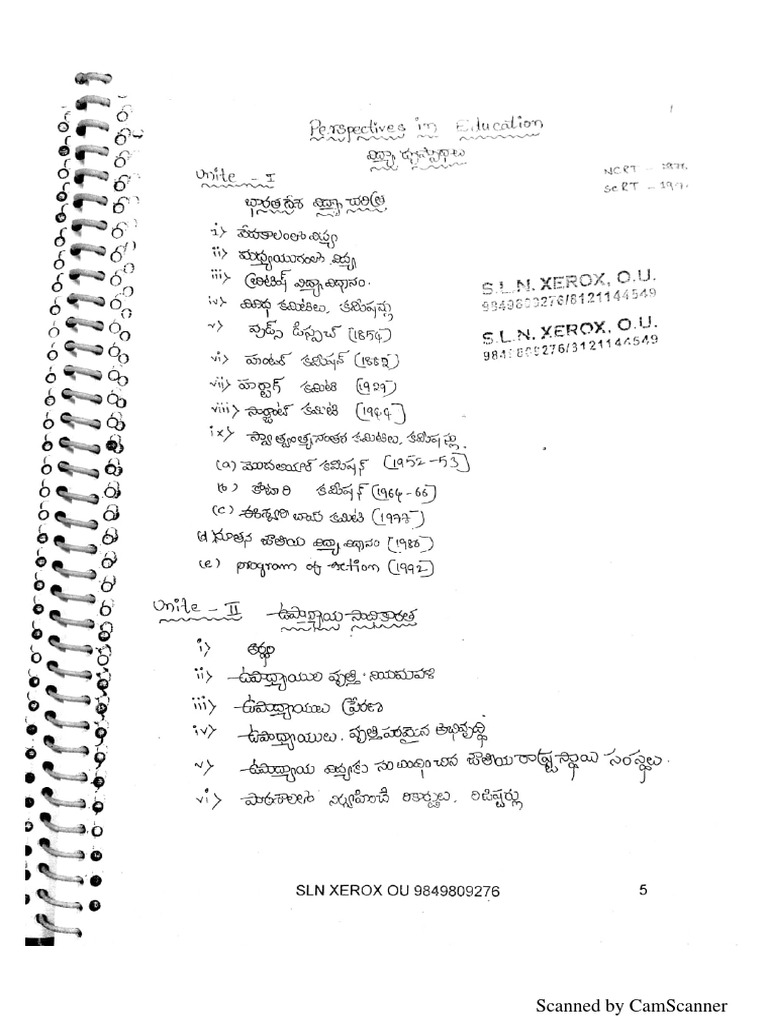 1
Perspectives in Education
విద్యా దృక్పథాలు
NCRT -
SCRT -
Unite - I
భారతదేశ విద్యా చరిత్ర
i> వేదకాలంలో విద్య
ii> మధ్యయుగంలో విద్య
iii> బ్రిటిష్ విద్యా విధానం.
iv> వివిధ కమిటీలు, కమీషన్లు
S.L.N. XEROX, O.U.
9849809276/8121144549
v> వుడ్స్ డిస్పాచ్ (1854)
S.L.N. XEROX, O.U.
9849809276/8121144549
vi> హంటర్ కమీషన్ (1882)
vii> హర్టాగ్ కమిటి (1927)
viii> సార్జంట్ కమిటి (1944)
ix> స్వాతంత్ర్యానంతర కమిటీలు, కమీషన్లు.
(a) మొదలియార్ కమీషన్ (1952-53)
(b) కొఠారి కమీషన్ (1964-66)
(c) ఈశ్వరీ బాయి కమిటి (1977)
(d) నూతన జాతీయ విద్యా విధానం (1986)
(e) program of Action (1992)
Unite - II ఉపాధ్యాయ సాధికారత
i> అర్థం
ii> ఉపాధ్యాయుల వృత్తి నియమావళి
iii> ఉపాధ్యాయులు ప్రేరణ
iv> ఉపాధ్యాయులు. వృత్తిపరమైన అభివృద్ధి
v> ఉపాధ్యాయ విద్యకు సంబంధించిన జాతీయ రాష్ట్ర స్థాయి సంస్థలు.
vi> పాఠశాలలో నిర్వహించే రికార్డులు, రిజిష్టర్లు
SLN XEROX OU 9849809276 5
Scanned by CamScanner